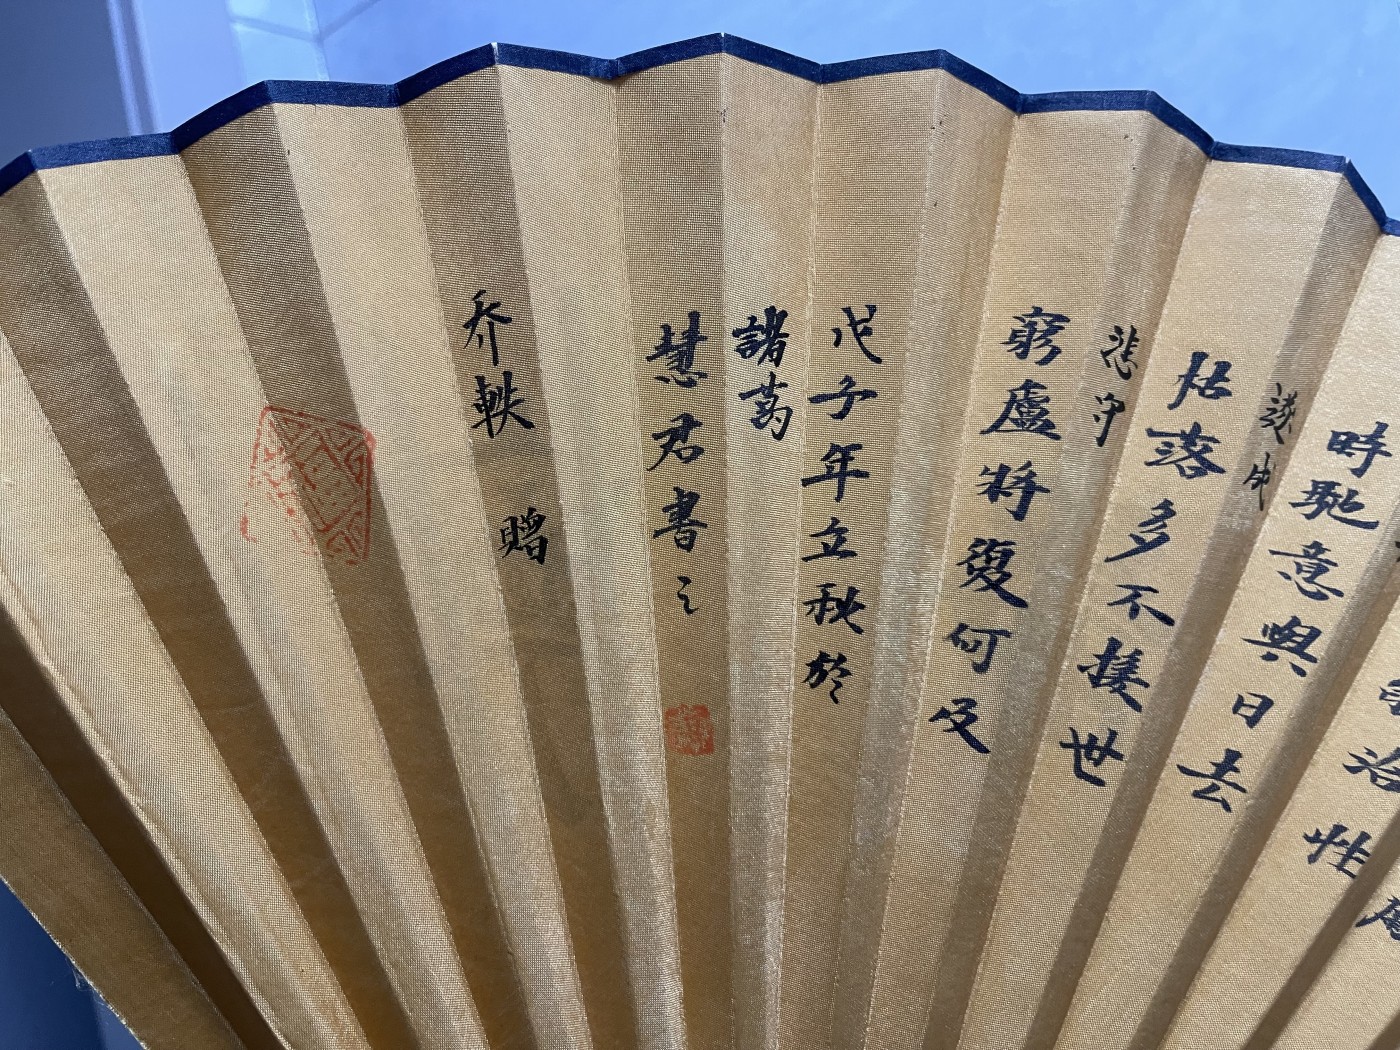 治性
時馳意與日去
遂成
枯落多不接世
悲守
窮盧將復何及
戊子年立秋於
諸葛
慧君書之
乔軼 贈